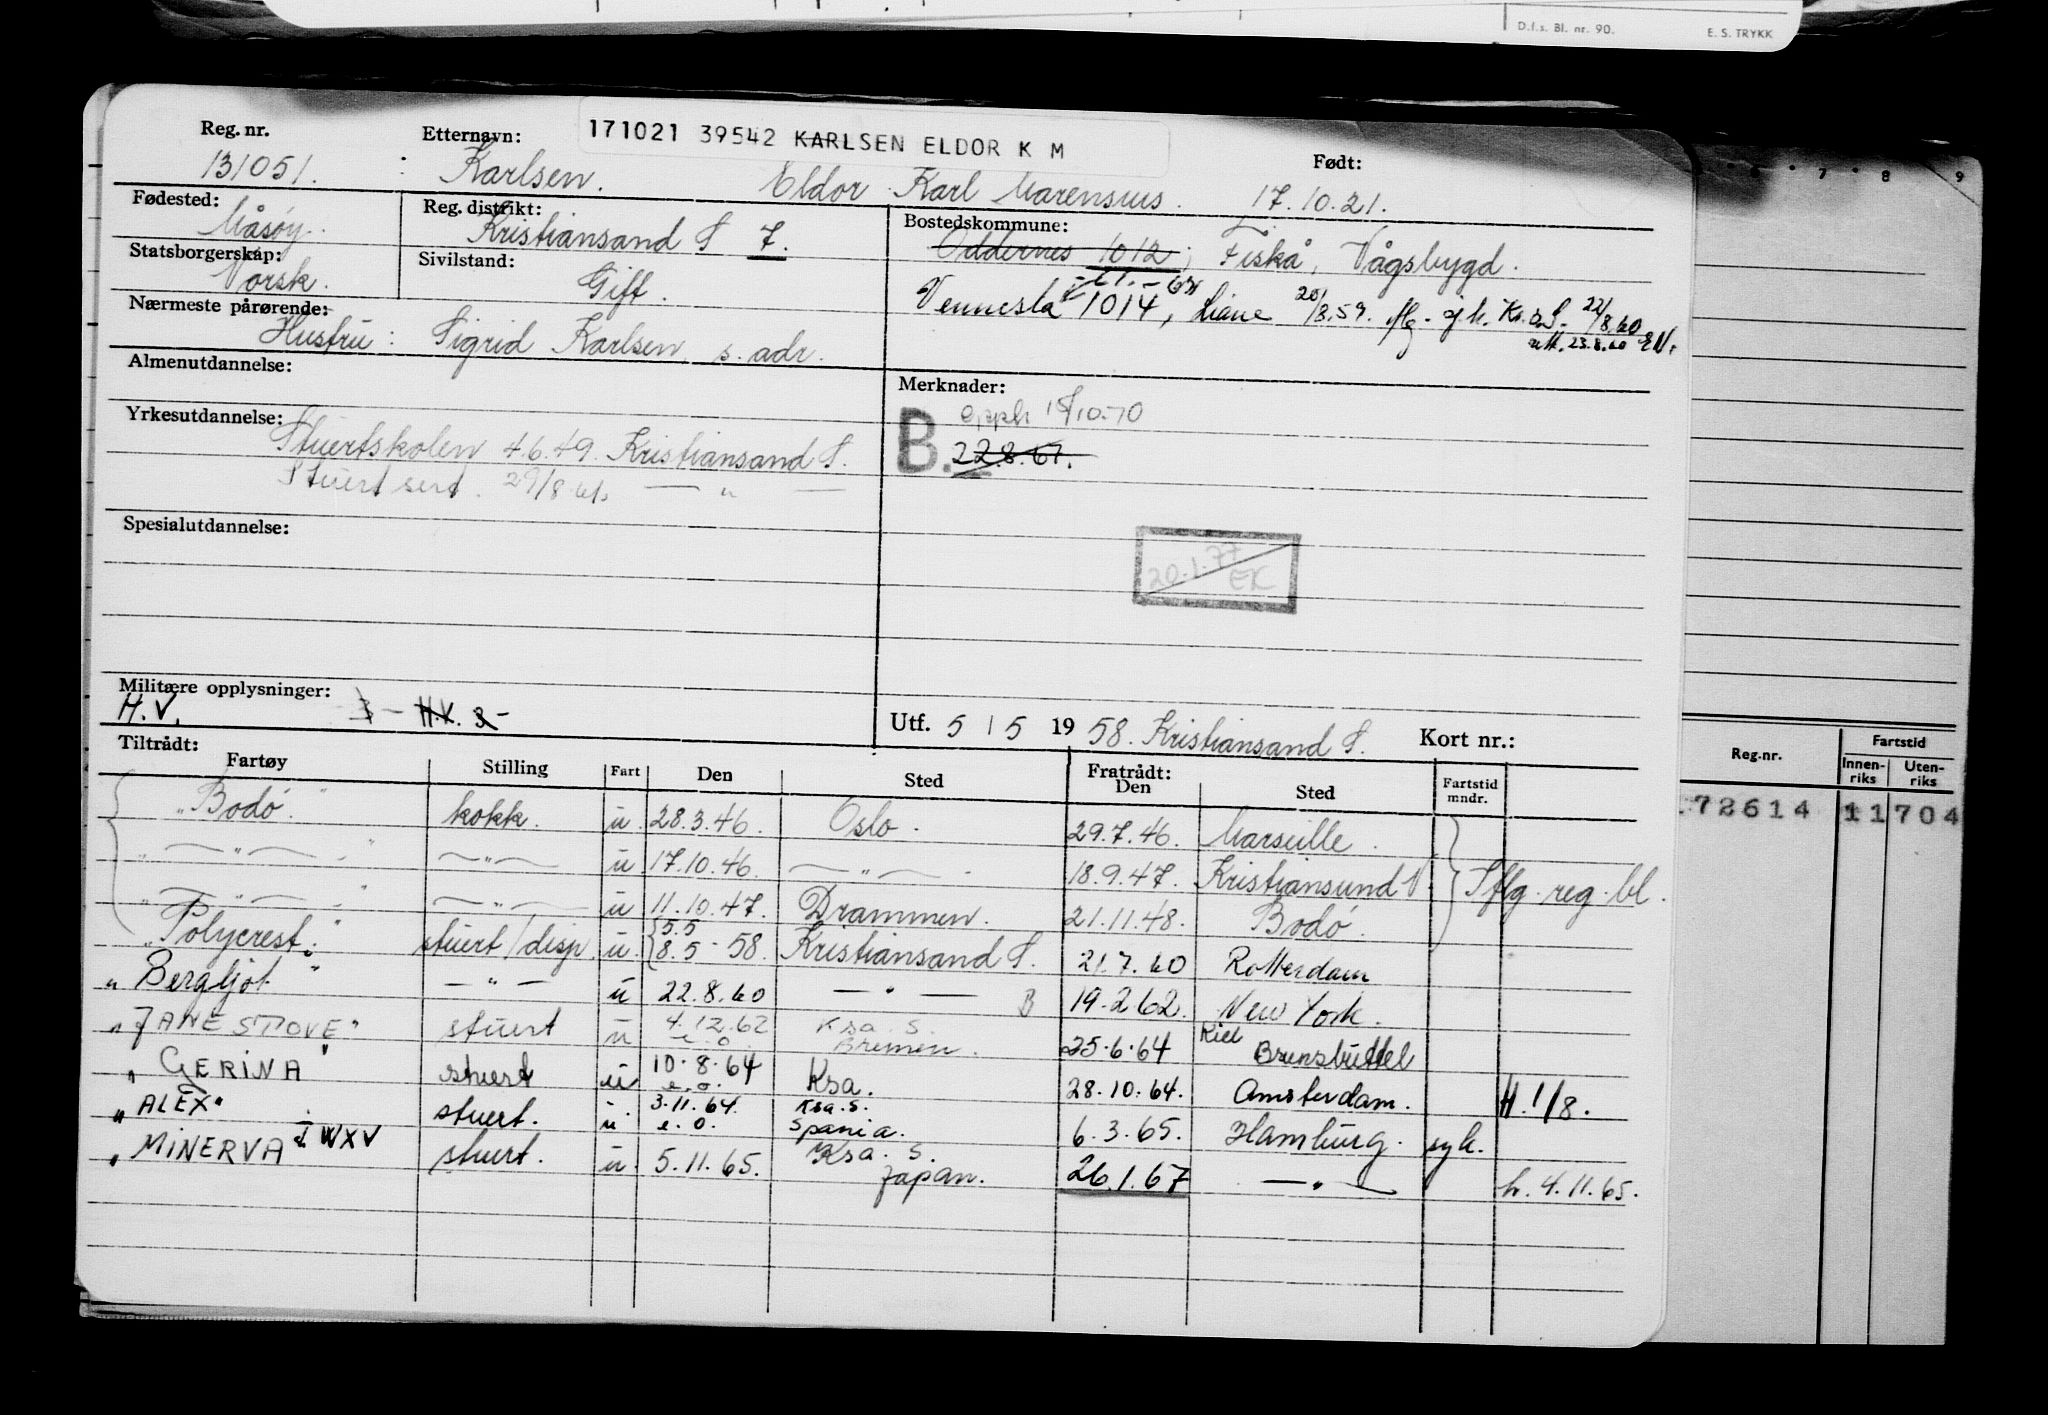 D.f.s. Bl. nr. 90. E. S. TRYKK
7 8 9
171021 39542 KARLSEN ELDOR K M
Reg. nr. Etternavn: Født:
131051. Karlsen. Eldor Karl Marensius. 17.10.21.
Fødested: Reg. distrikt: Bostedskommune:
Måsøy. Kristiansand S 7. Oddernes 1012; Fiskå, Vågsbygd.
Statsborgerskap: Sivilstand:
Norsk. Gift. Vennesla 1014, 20/8.59. 22/8.60
23.8.60
Nærmeste pårørende:
Hustru: Sigrid Karlsen s. adr.
Almenutdannelse: Merknader:
Yrkesutdannelse: B. 15/10-70
Stuertskolen 4.6.49. Kristiansand S. 22.8.67.
Stuert sert. 29/8 — " —
Spesialutdannelse:
20.1.77
EK
Militære opplysninger:
H.V. H.V. Utf. 5 / 5 19 58. Kristiansand S. Kort nr.:
Tiltrådt: Fratrådt:
Fartøy Stilling Fart Den Sted Den Sted Fartstid mndr.
"Bodø". kokk. u. 28.3.46. Oslo. 29.7.46. Marseille.
" — " — " — " — u 17.10.46. — " — 18.9.47. Kristiansund N. Sflg. reg. bl.
" — " — " — " — u 11.10.47. Drammen. 21.11.48. Bodø.
"Polycrest." stuert/disp. u. 5.5 8.5-58. Kristiansand S. 21.7.60 Rotterdam
"Bergljot" — " — u 22.8.60 — " — B 19.2.62. New York.
"JANE STOVE" stuert u 4.12.62 e.o. Ksa. S. Bremen. 25.6.64 Kiel Brunsbuttel
"GERINA" stuert u 10.8.64 e.o. Ksa. 28.10.64. Amsterdam. H. 1/8.
"ALEX" stuert. u. 3.11.64. e.o. Ksa. S. Spania. 6.3.65. Hamburg. syk.
"MINERVA" I WXV stuert. u. 5.11.65. Ksa. S. Japan. 26.1.67 — " — h. 4.11.65.
Reg.nr. Fartstid
Innen-riks Uten-riks
72614 11 704